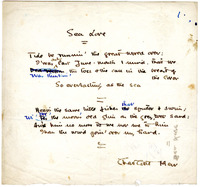 1.
Sea Love
Tide be runnin' the great world over;
'Twas only last June month I mind, that we
Was thinkin' the toss and the call in the breast of the lover
So everlasting as the sea.
Here's the same little fishes that sputter & swim,
Wi' the moon's old glim on the grey, wet sand;
An' him no more to me nor me to him
Than the wind goin' over my hand.
Charlotte Mew